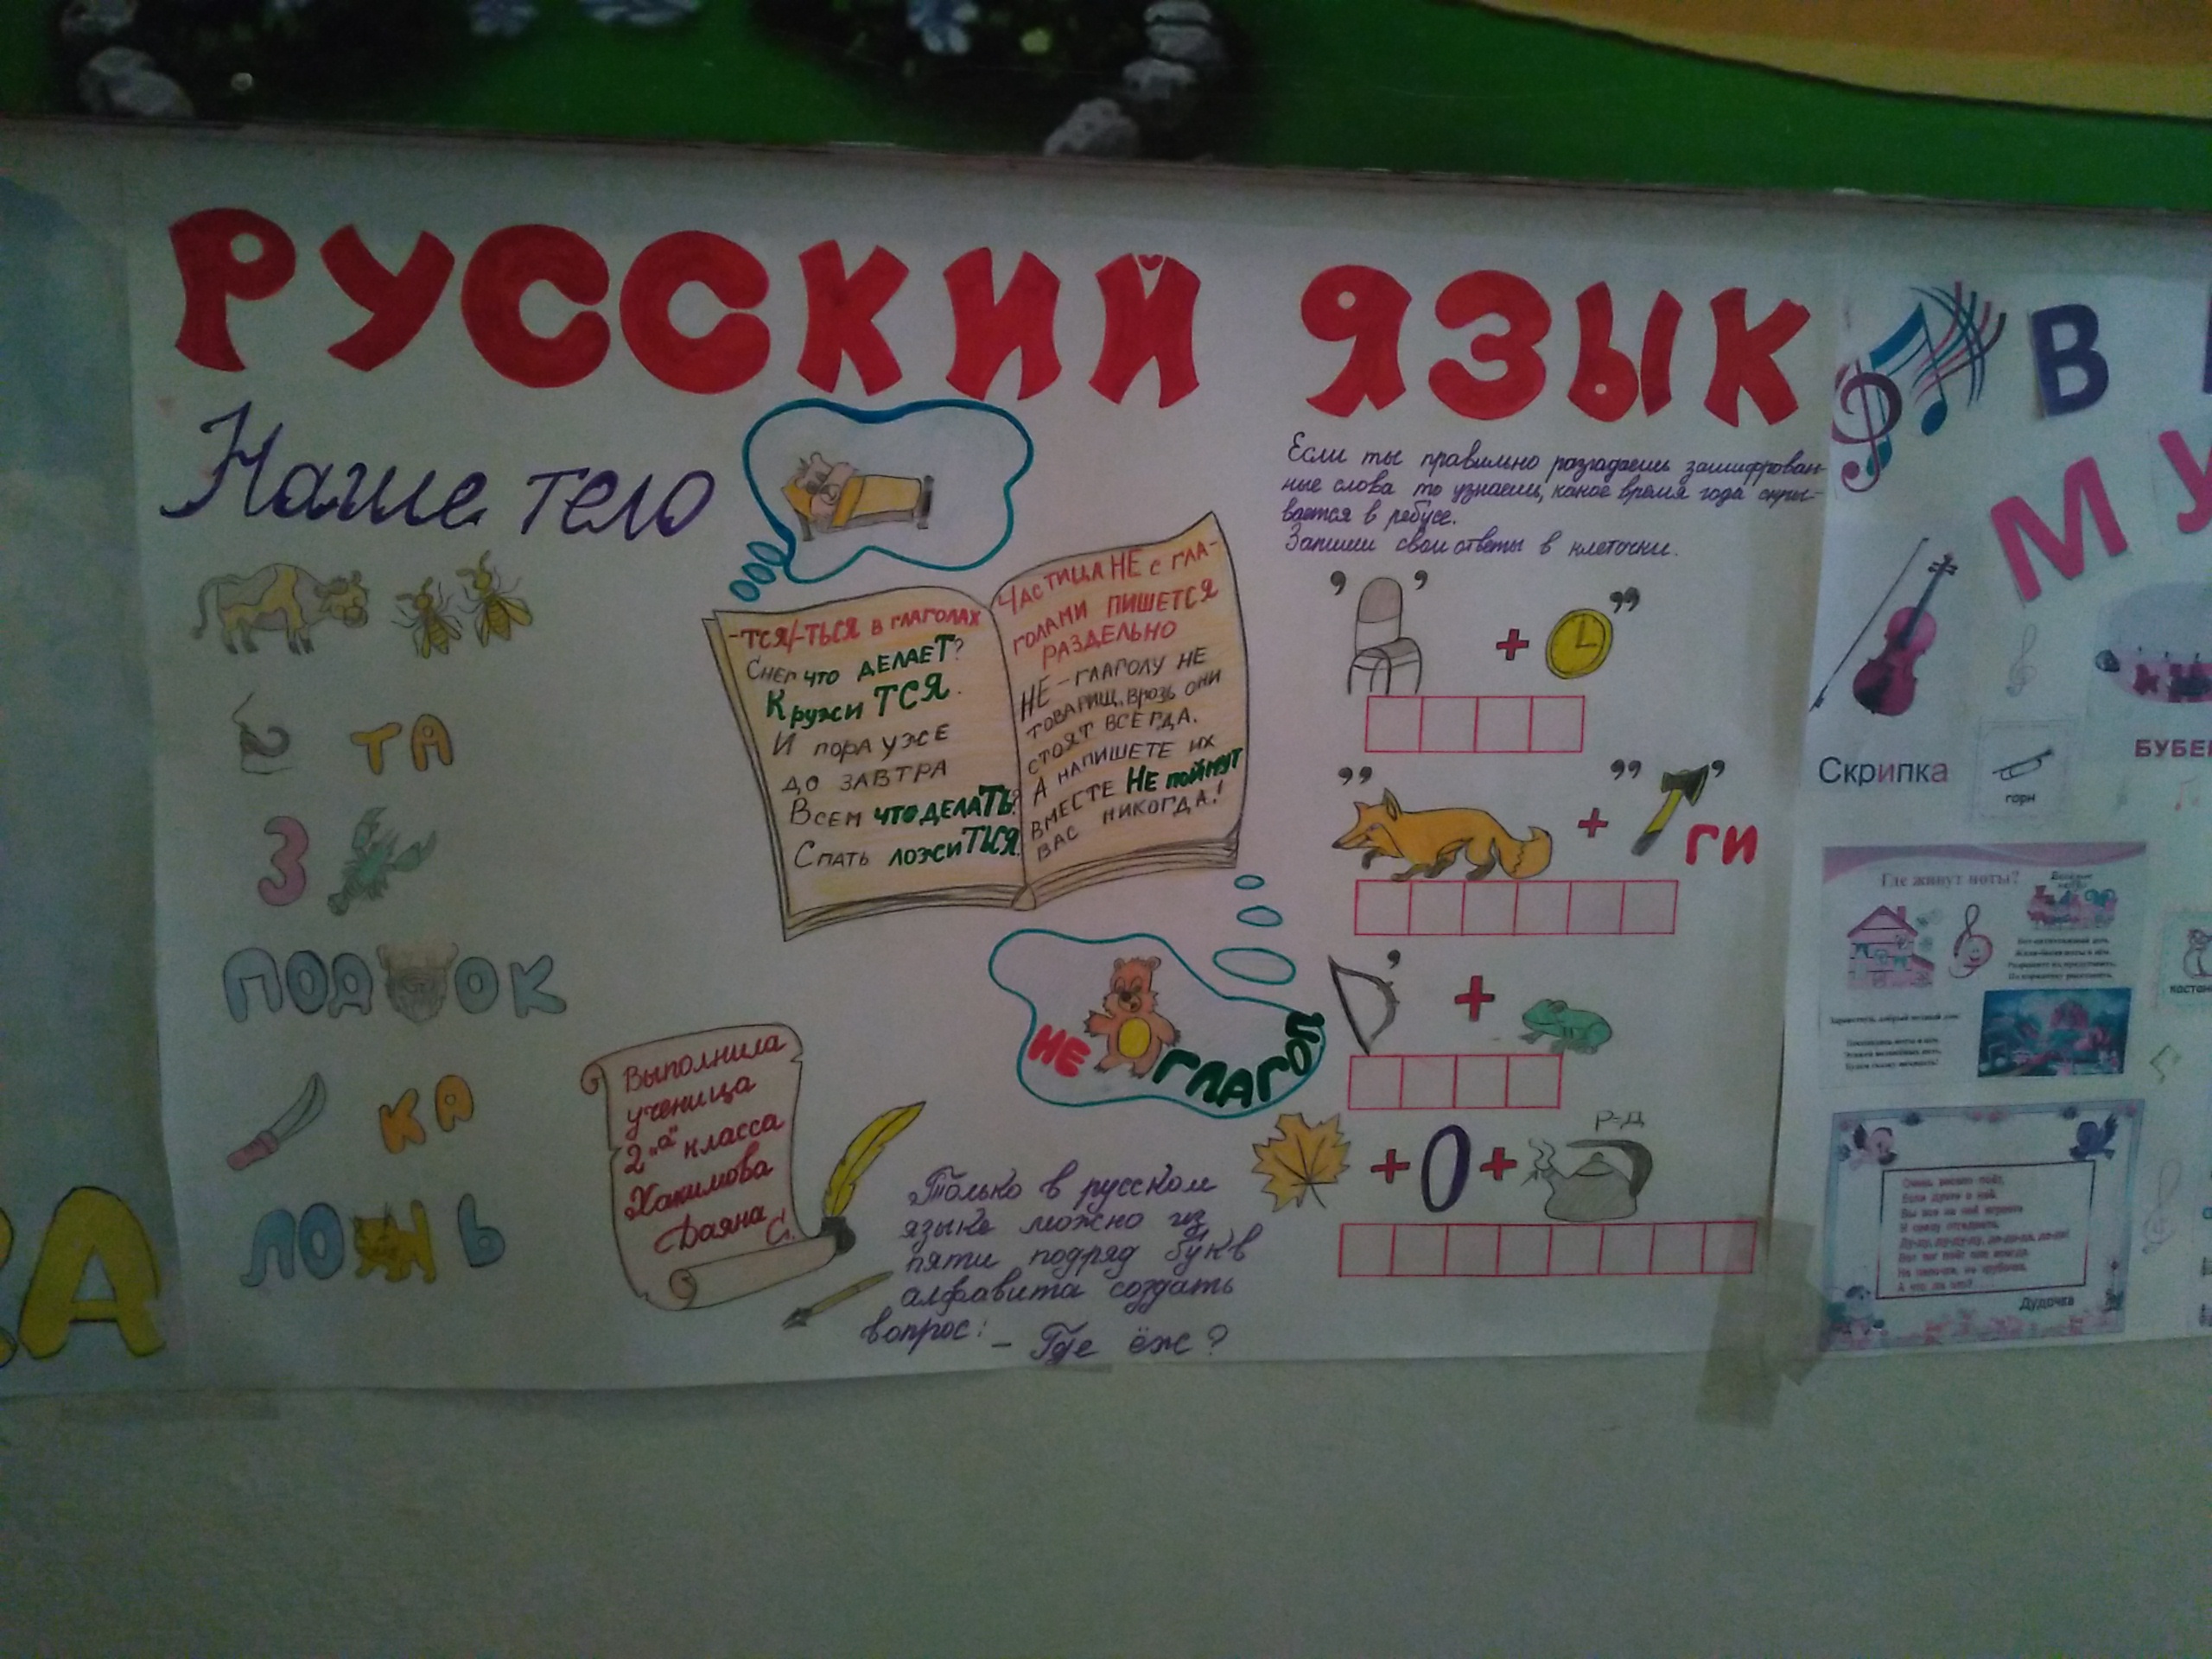 РУССКИЙ ЯЗЫК
Наше тело
ТА
З
ПОД ОК
КА
ЛО Ь
-ТСЯ/-ТЬСЯ В ГЛАГОЛАХ
Снег ЧТО ДЕЛАЕТ?
КружиТСЯ.
И ПОРА УЖЕ
ДО ЗАВТРА
Всем ЧТО ДЕЛАТЬ?
Спать ложиТЬСЯ.
ЧАСТИЦА НЕ с ГЛА-
ГОЛАМИ ПИШЕТСЯ
РАЗДЕЛЬНО
НЕ - ГЛАГОЛУ НЕ
ТОВАРИЩ, ВРОЗЬ ОНИ
СТОЯТ ВСЕГДА.
А НАПИШЕТЕ ИХ
ВМЕСТЕ НЕ ПОЙМУТ
ВАС НИКОГДА!
НЕ ГЛАГОЛ
Выполнила
ученица
2 "а" класса
Хакимова
Даяна С.
Только в русском
языке можно из
пяти подряд букв
алфавита создать
вопрос:
- Где ёж?
Если ты правильно разгадаешь зашифрован-
ные слова то узнаешь, какое время года скры-
вается в ребусе.
Запиши свои ответы в клеточки.
, , + ,,
,, + ,, , ГИ
, +
Р=Д
+ О +
В
М У
Скрипка
БУБЕ
горн
Где живут ноты?
Дудочка
А